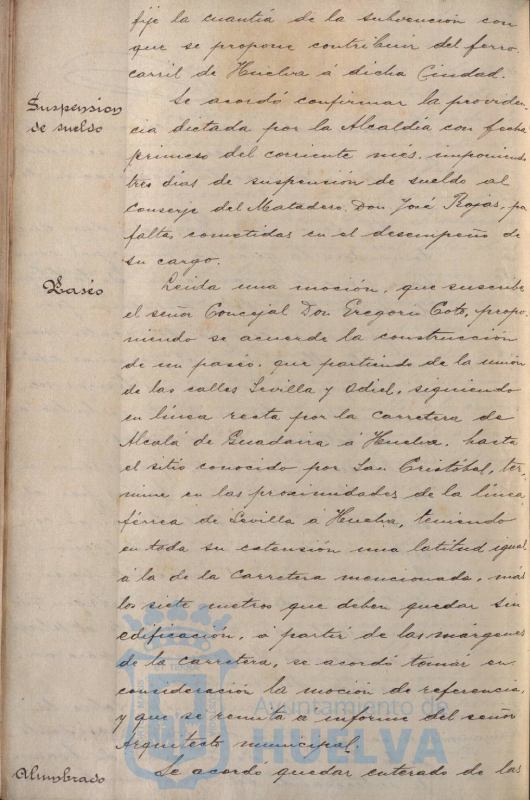 fije la cuantía de la subvención con
que se propone contribuir del ferro
carril de Huelva á dicha Ciudad.
Suspension
de sueldo
Se acordó confirmar la providen
cia dictada por la Alcaldía con fecha
primero del corriente mes, imponiendo
tres dias de suspensión de sueldo al
Conserje del Matadero Don José Rojas, por
faltas cometidas en el desempeño de
su cargo.
Paseo
Leida una moción, que suscribe
el señor Concejal Don Gregorio Coto, propo
niendo se acuerde la construcción
de un paseo, que partiendo de la unión
de las calles Sevilla y Odiel, siguiendo
en línea recta por la carretera de
Alcalá de Guadaira á Huelva, hasta
el sitio conocido por San Cristóbal, ter-
mine en las proximidades de la línea
férrea de Sevilla á Huelva, teniendo
en toda su estensión una latitud igual
á la de la Carretera mencionada, más
los siete metros que deben quedar sin
edificación, á partir de las márgenes
de la carretera, se acordó tomar en
consideración la moción de referencia
y que se remita a informe del señor
Arquitecto municipal.
Alumbrado
Se acordó quedar enterado de las
Ayuntamiento de
HUELVA